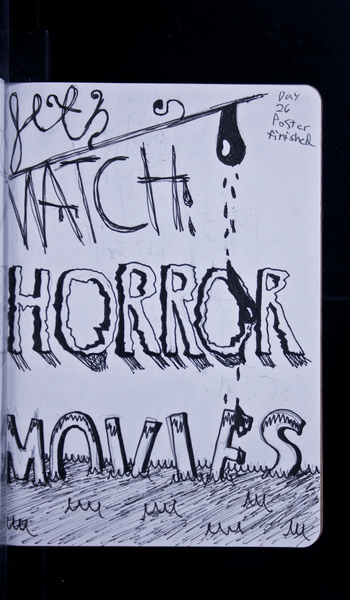 Day
26
Poster
finished
let's
WATCH
HORROR
MOVIES